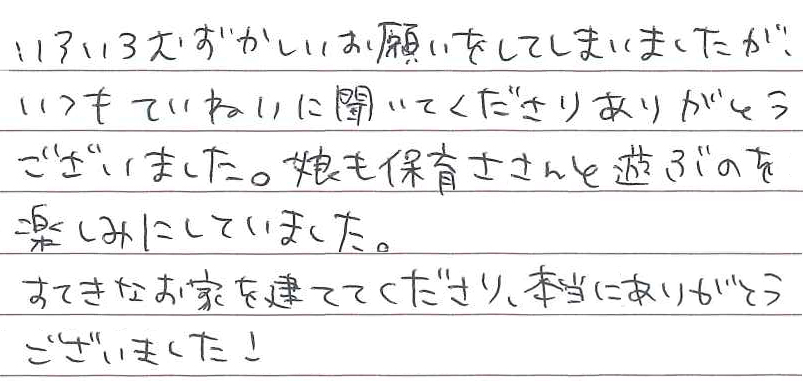 いろいろむずかしいお願いをしてしまいましたが、
いつもていねいに聞いてくださりありがとう
ございました。娘も保育士さんと遊ぶのを
楽しみにしていました。
すてきなお家を建ててくださり、本当にありがとう
ございました!